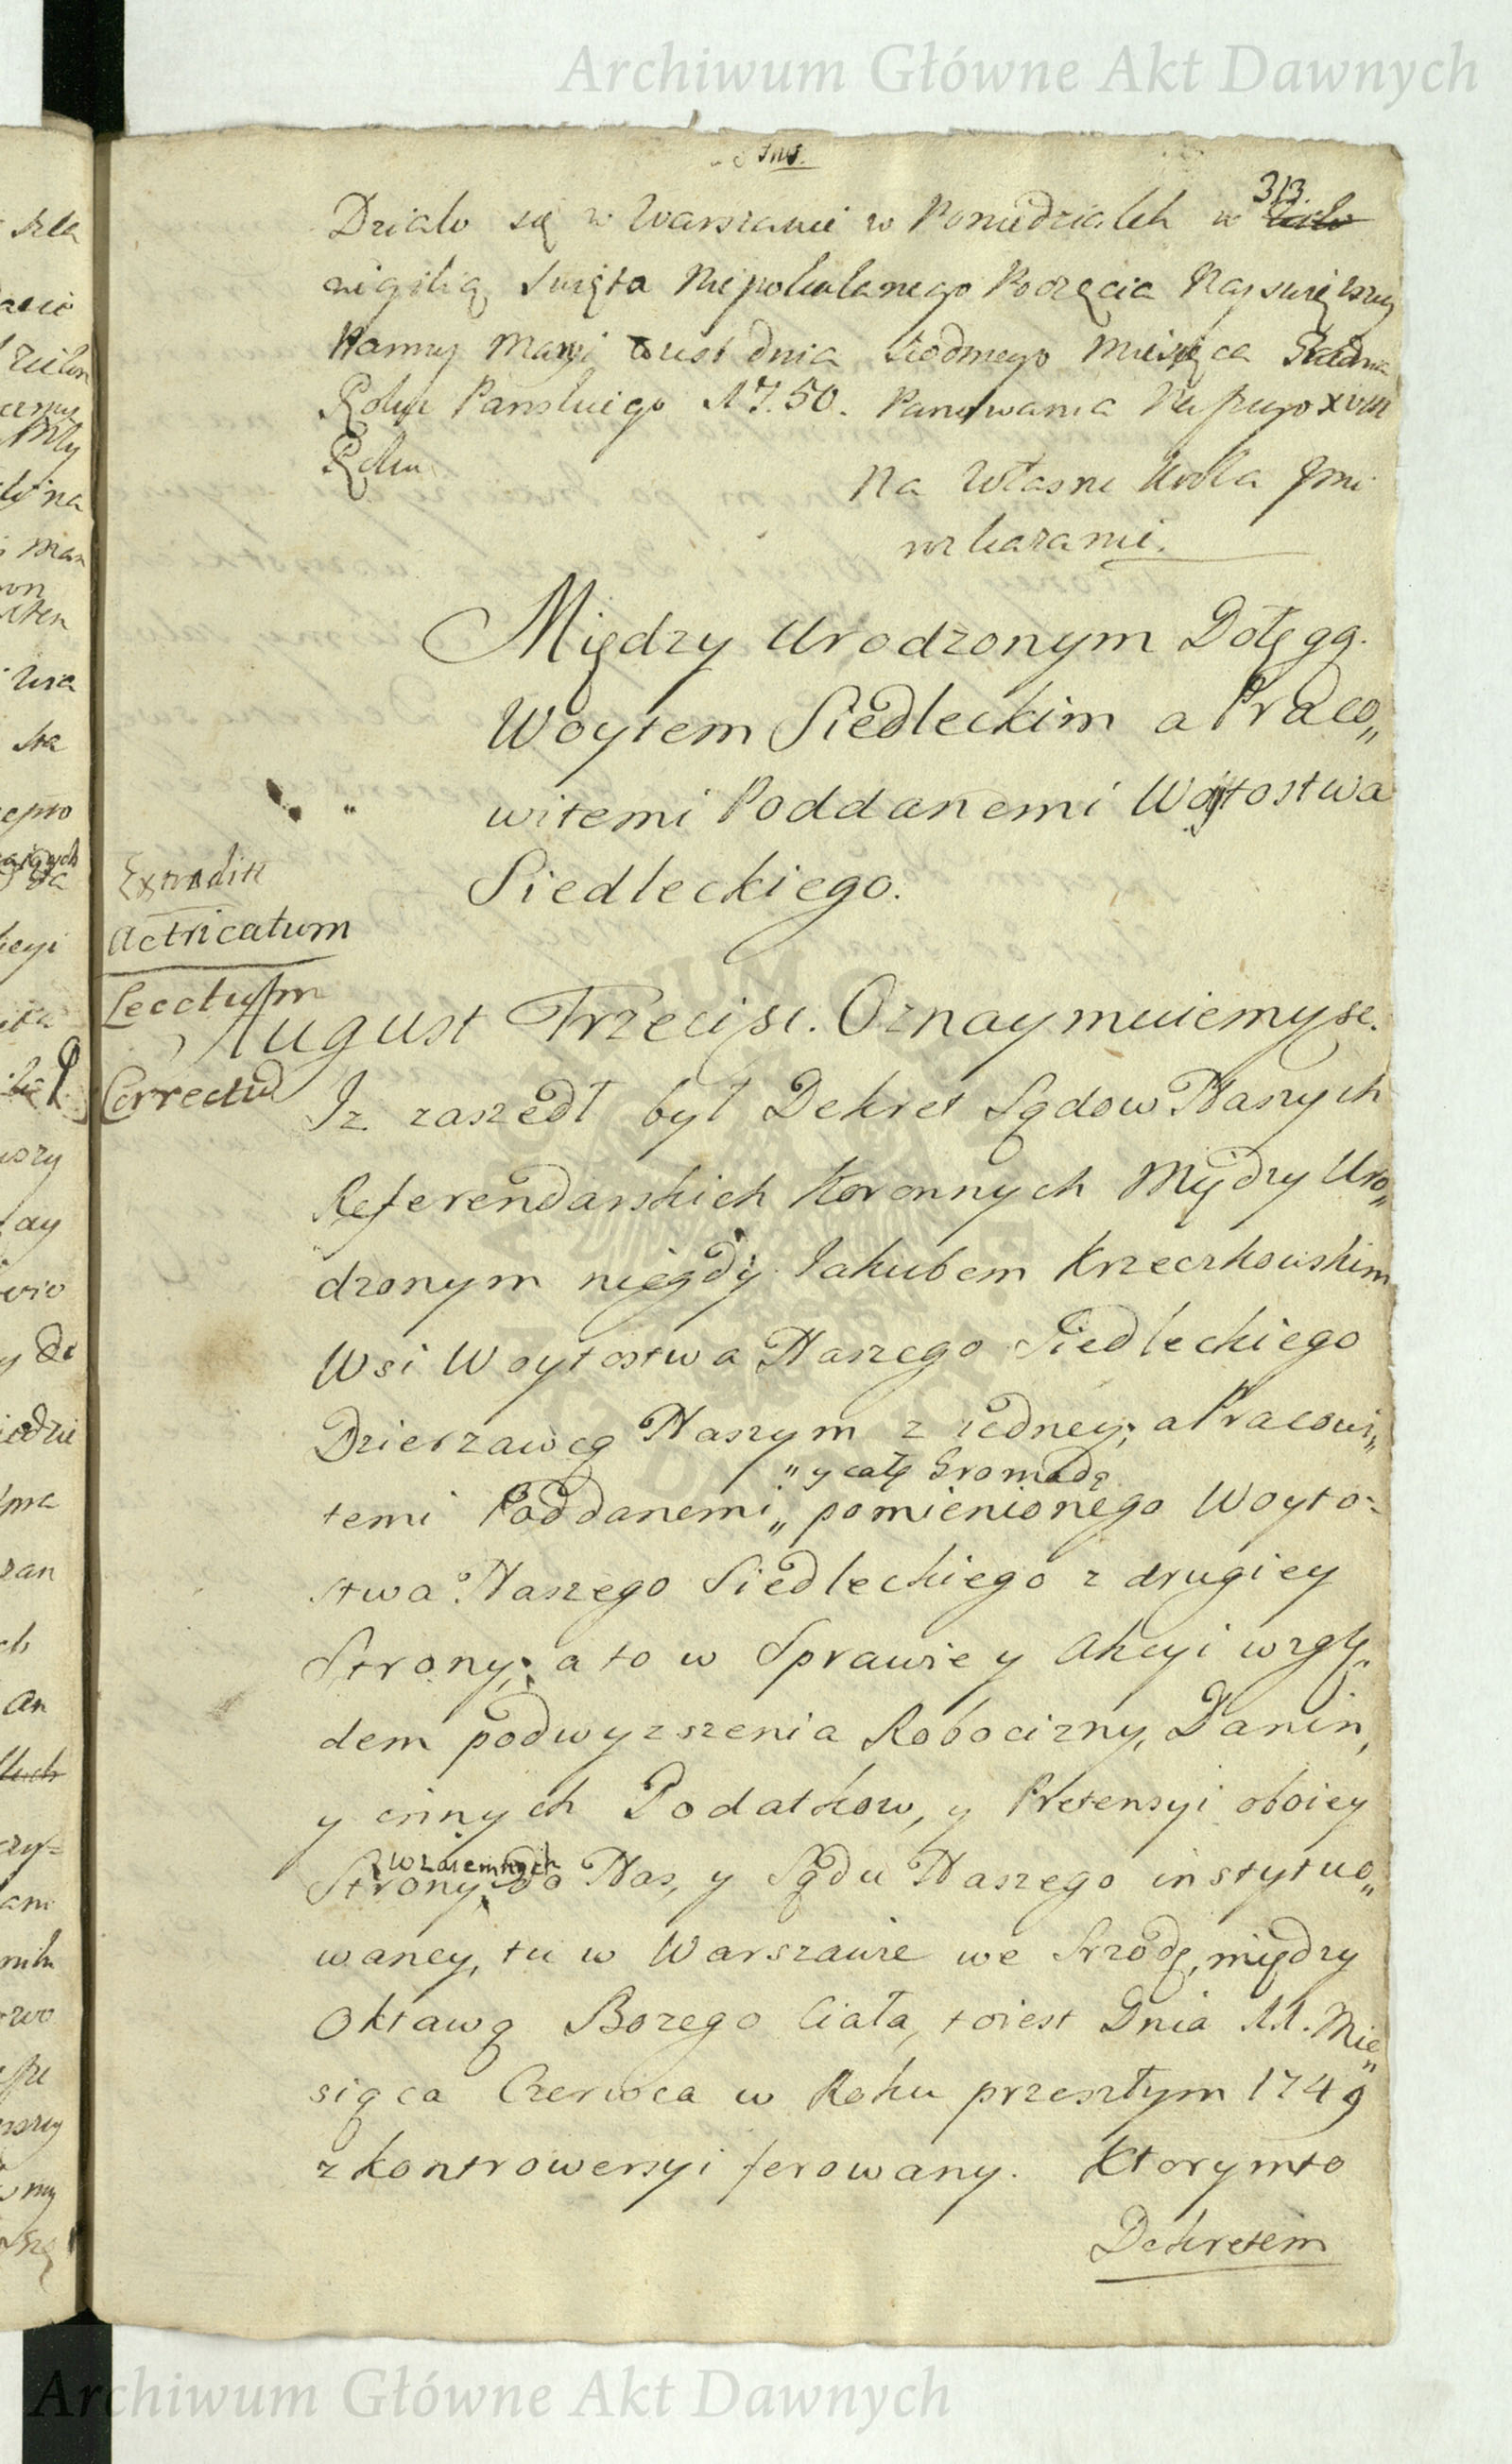 Archiwum Główne Akt Dawnych
313.
Działo się w Warszawie w Poniedziałek w
wigilią Swięta Niepokalanego Poczęcia Nayswiętszey
Panny Maryi to iest dnia siodmego Miesięca Grudnia
Roku Panskiego 1750. Panowania Naszego XVIII
Roku
Na własne Krola Jmci
rozkazanie.
Między Urodzonym Dołęgą.
Woytem Siedleckim a Praco„
witemi Poddanemi Woytostwa
Siedleckiego.
Extradit
Actricatum
Lecctum
Correctu
August Trzeci sc. Oznaymuiemy sc.
Iz zaszedł był Dekret Sądow Naszych
Referendarskich Koronnych Między Uro„
dzonym niegdy Iakubem Krzeczkowskim
Wsi Woytostwa Naszego Siedleckiego
Dzierzawcą Naszym z iedney; a Pracowi„
„ y całą Gromadą
temi Poddanemi„ pomienionego Woyto=
stwa Naszego Siedleckiego z drugiey
Strony; a to w Sprawie y Akcyi wzglę„
dem podwyzszenia Robocizny, Danin,
y innych Podatkow, y Pretensyi oboiey
wzaiemnych
Strony do Nas, y Sądu Naszego instytuo„
waney, tu w Warszawie we Srzodę, między
Oktawą Bozego Ciała, to iest Dnia 11. Mie„
siąca Czerwca w Roku przeszłym 1749
z kontrowersyi ferowany. Ktorymto
Dekretem
Archiwum Główne Akt Dawnych